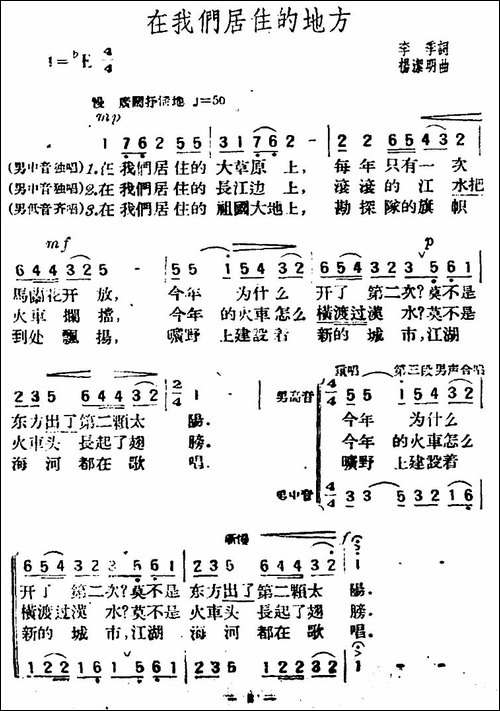 在我們居住的地方
李季詞
1=ᵇE 4/4
楊潔明曲
慢 广闊抒情地 ♩=50
mp
1 762 2 55 | 31762 - | 2 2 654 432
(男中音独唱)1.在我們居住的 大草原 上, 每年只有一次
(男中音独唱)2.在我們居住的 長江边 上, 滚滚的江水把
(男低音齐唱)3.在我們居住的 祖國大地上, 勘探隊的旗帜
mf
p
6 4 4 3 2 5 - | 5 5 1 5 4 3 2 | 6 5 4 3 2 3 5 6 1
馬蘭花开 放, 今年 为什么 开了 第二次?莫不是
火車 攔擋, 今年 的火車怎么 橫渡过漢 水?莫不是
到处 飄揚, 曠野 上建設着 新的 城 市,江湖
2 3 5 6 4 4 3 2 | 2/4 1 -
东方出了第二顆太 陽.
火車头 長起了翅 膀.
海河都在歌 唱.
領唱 第三段男声合唱
男高音 4/4 5 5 1 5 4 3 2
今年 为什么
今年 的火車怎么
曠野 上建設着
男中音 4/4 3 3 5 3 2 1 6
漸慢
f
6 5 4 3 2 3 5 6 1 | 2 3 5 6 4 4 3 2 | 1
开了 第二次?莫不是 东方出了第二顆太 陽.
橫渡过漢 水?莫不是 火車头 長起了翅 膀.
新的 城 市,江湖 海河都在歌 唱.
1 2 2 1 6 1 5 5 1 | 2 2 1 2 2 3 2 | 1